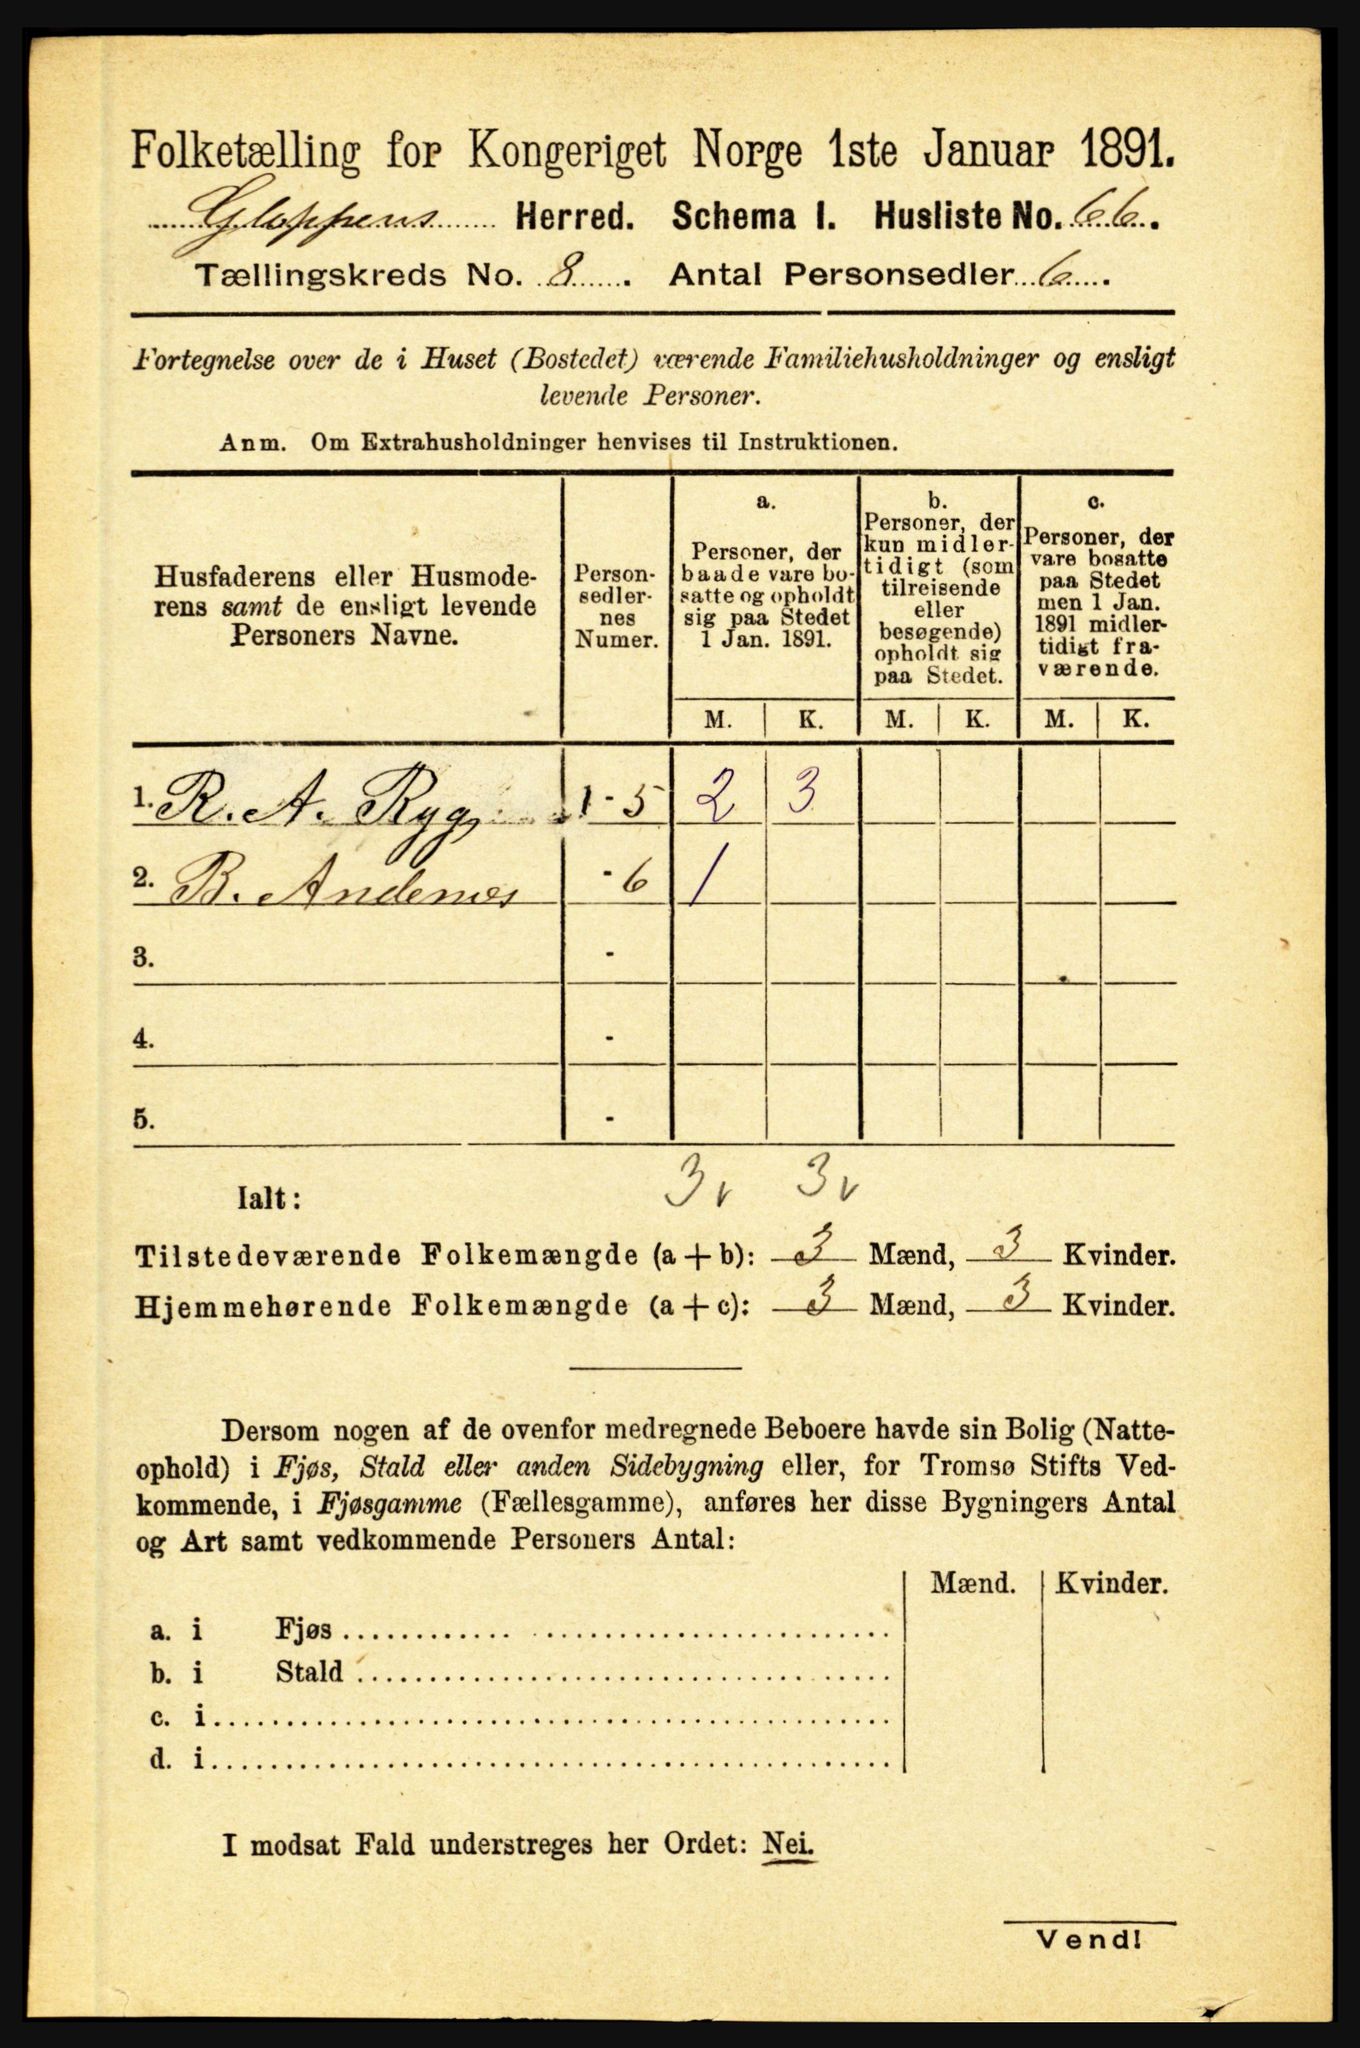 Folketælling for Kongeriget Norge 1ste Januar 1891.
Gloppens Herred. Schema I. Husliste No. 66.
Tællingskreds No. 8. Antal Personsedler 6.
Fortegnelse over de i Huset (Bostedet) værende Familiehusholdninger og ensligt
levende Personer.
Anm. Om Extrahusholdninger henvises til Instruktionen.
Husfaderens eller Husmode-
rens samt de ensligt levende
Personers Navne.
Person-
sedler-
nes
Numer.
a.
Personer, der
baade vare bo-
satte og opholdt
sig paa Stedet
1 Jan. 1891.
b.
Personer, der
kun midler-
tidigt (som
tilreisende
eller
besøgende)
opholdt sig
paa Stedet.
c.
Personer, der
vare bosatte
paa Stedet
men 1 Jan.
1891 midler-
tidigt fra-
værende.
M. K. M. K. M. K.
1. R. A. Ryg 1-5 2 3
2. B. Andenæs -6 1
3. -
4. -
5. -
3v 3v
Ialt:
Tilstedeværende Folkemængde (a + b): 3 Mænd, 3 Kvinder.
Hjemmehørende Folkemængde (a + c): 3 Mænd, 3 Kvinder.
Dersom nogen af de ovenfor medregnede Beboere havde sin Bolig (Natte-
ophold) i Fjøs, Stald eller anden Sidebygning eller, for Tromsø Stifts Ved-
kommende, i Fjøsgamme (Fællesgamme), anføres her disse Bygningers Antal
og Art samt vedkommende Personers Antal:
Mænd. Kvinder.
a. i Fjøs
b. i Stald
c. i
d. i
I modsat Fald understreges her Ordet: Nei.
Vend!